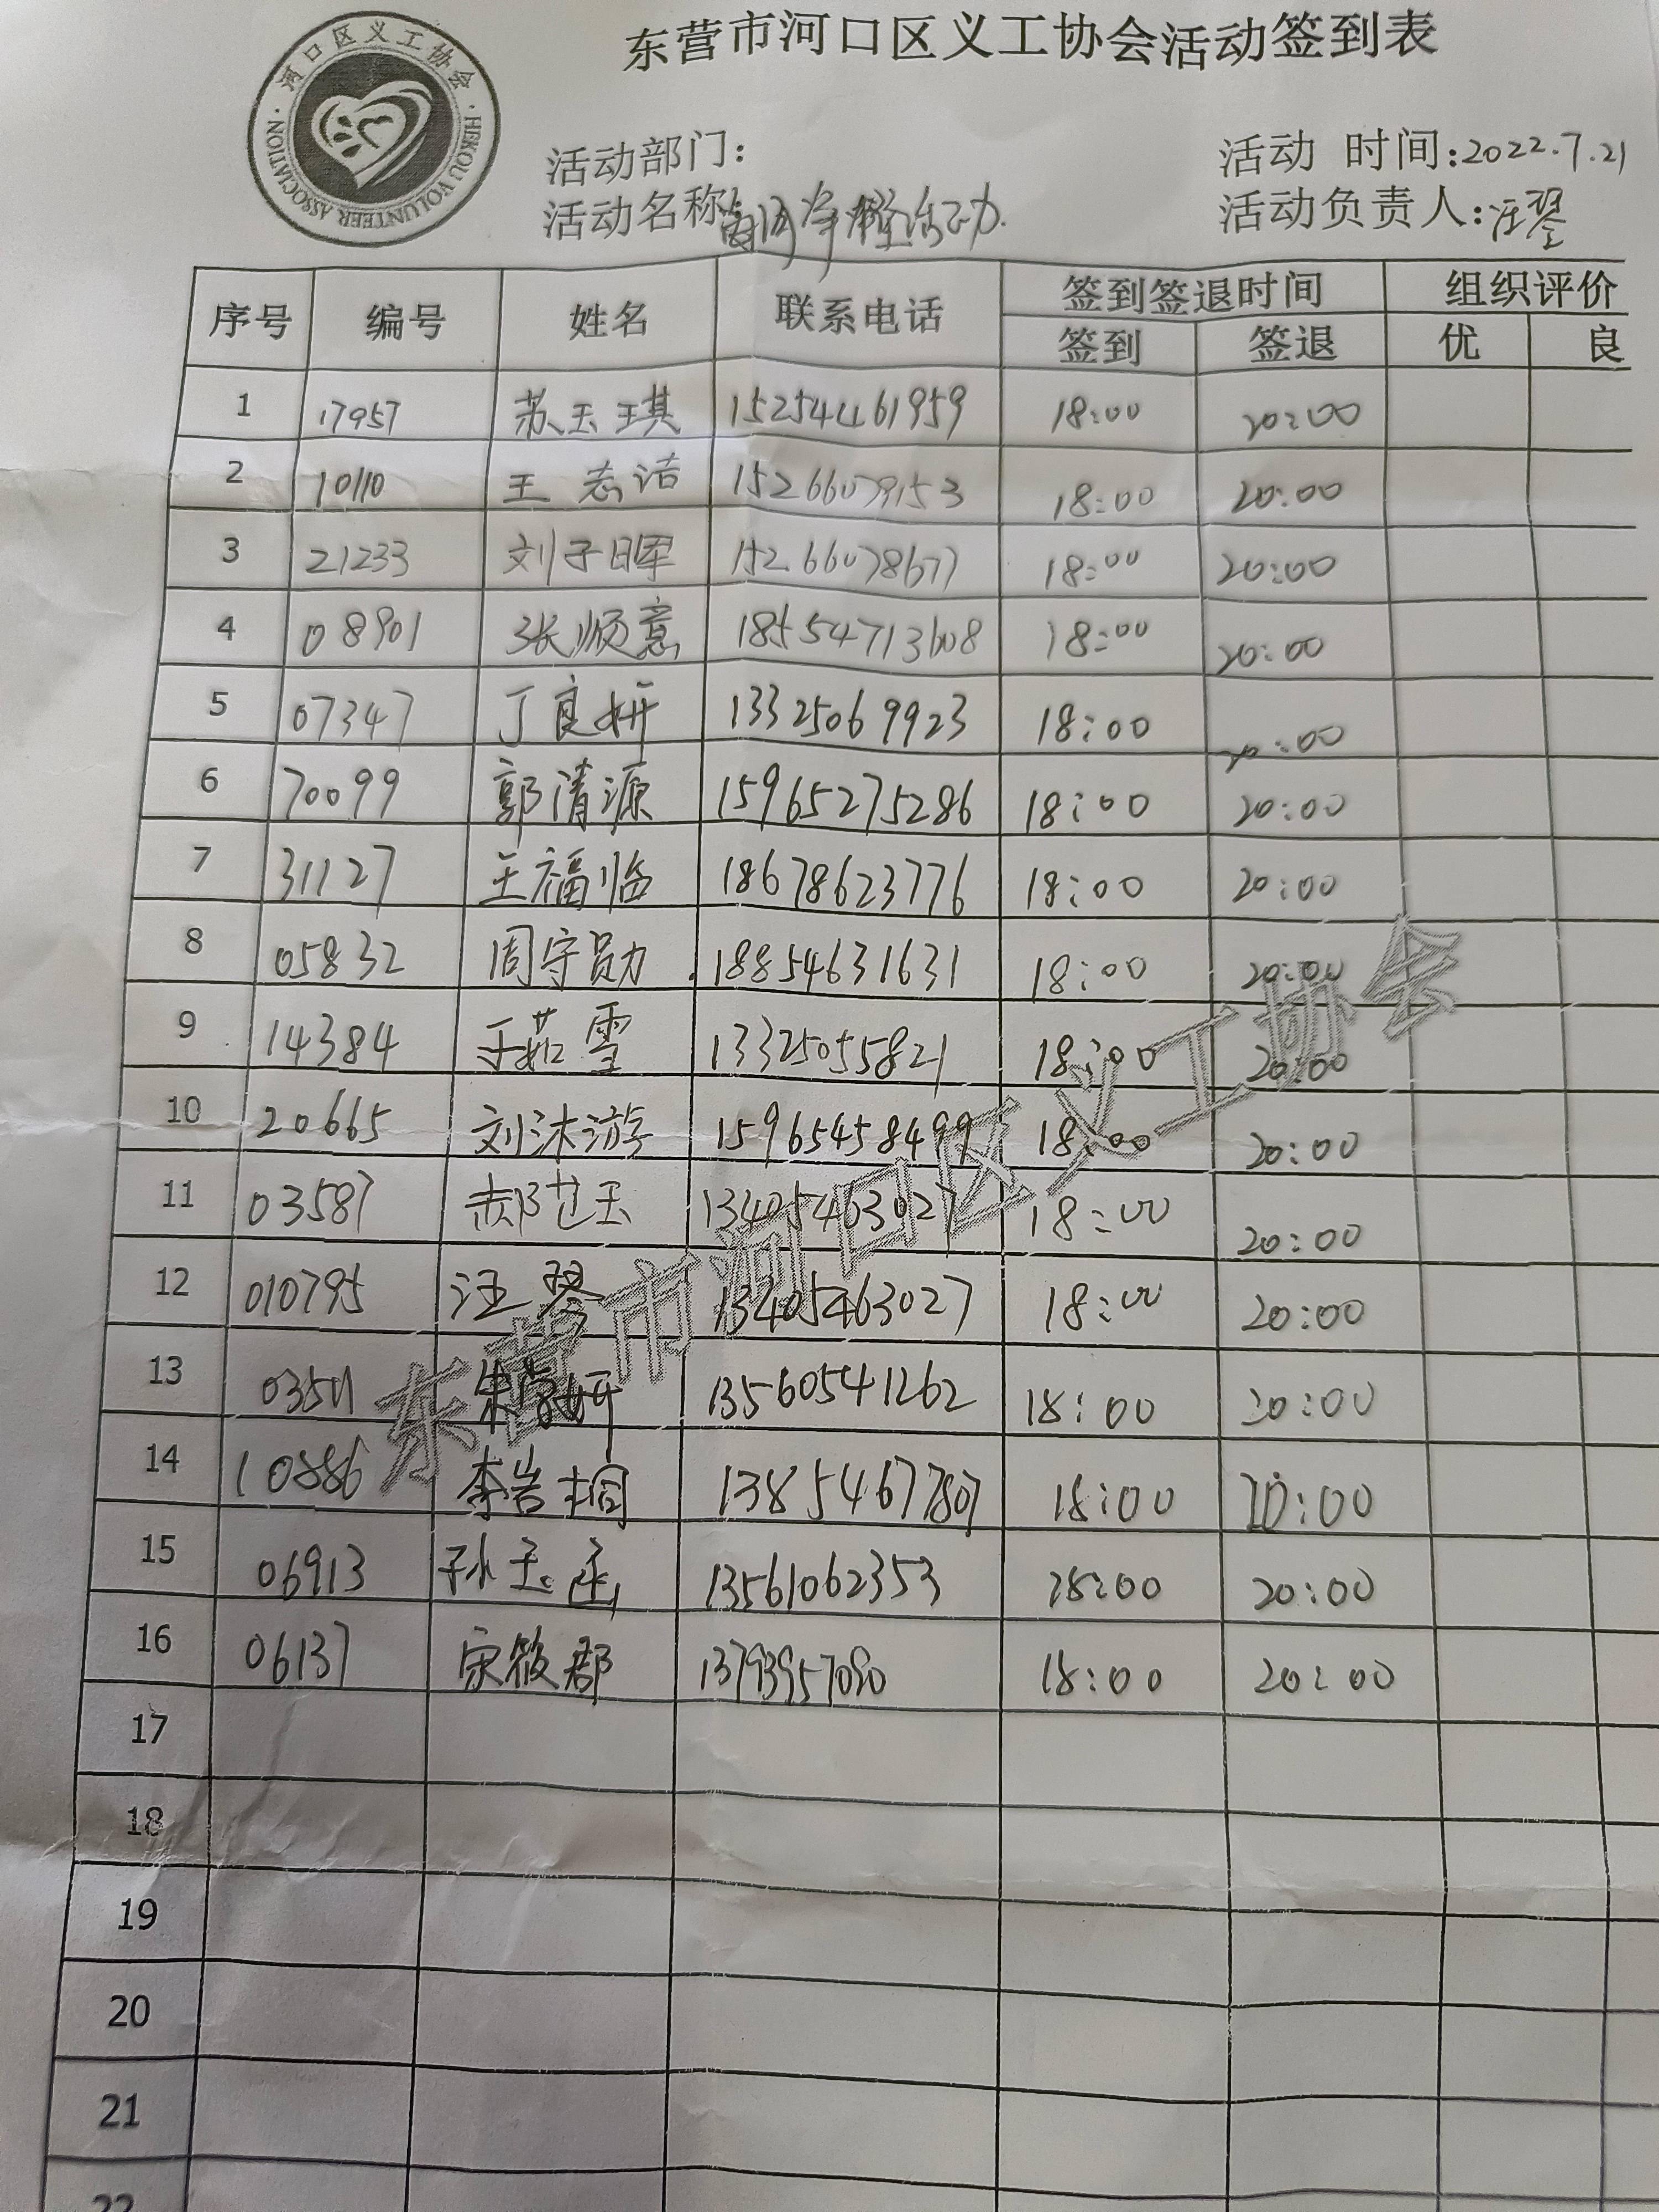 河口区义工协会
HEKOU VOLUNTEER ASSOCIATION
东营市河口区义工协会活动签到表
活动部门： 活动 时间：2022.7.21
活动名称 活动 活动负责人：汪琴
序号 编号 姓名 联系电话 签到签退时间 组织评价
签到 签退 优 良
1 17957 苏玉琪 15254461959 18:00 20:00
2 10110 王志洁 15266079153 18:00 20:00
3 21233 刘子晖 15266078677 18:00 20:00
4 08901 张顺意 18554713608 18:00 20:00
5 07347 丁良妍 13325069923 18:00 20:00
6 70099 郭清源 15965275286 18:00 20:00
7 31127 王福临 18678623776 18:00 20:00
8 05832 周守勋 18854631631 18:00 20:00
9 14384 于茹雪 13325055821 18:00 20:00
10 20665 刘沐游 15965458499 18:00 20:00
11 03587 郝芑玉 13405463027 18:00 20:00
12 010795 汪琴 13405463027 18:00 20:00
13 03511 朱常妍 13560541262 18:00 20:00
14 10886 李岩桐 13854677807 18:00 20:00
15 06913 孙玉函 13561062353 18:00 20:00
16 06137 宋筱郡 13793957090 18:00 20:00
17
18
19
20
21
22
东营市河口区义工协会